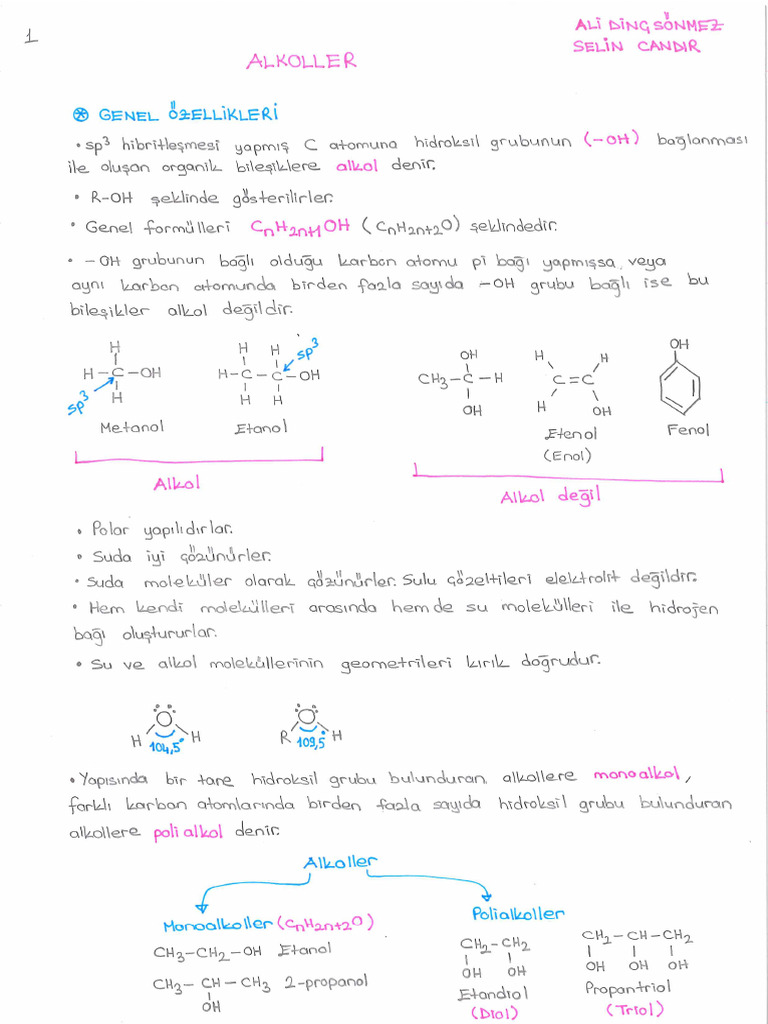 1
ALİ DİNÇSÖNMEZ
SELİN CANDIR
ALKOLLER
GENEL ÖZELLİKLERİ
• sp3 hibritleşmesi yapmış C atomuna hidroksil grubunun (-OH) bağlanması
ile oluşan organik bileşiklere alkol denir.
• R-OH şeklinde gösterilirler.
• Genel formülleri CnH2n+1OH (CnH2n+2O) şeklindedir.
• -OH grubunun bağlı olduğu karbon atomu pi bağı yapmışsa veya
aynı karbon atomunda birden fazla sayıda -OH grubu bağlı ise bu
bileşikler alkol değildir.
H
H-C-OH
H
sp3
Metanol
H H
H-C-C-OH
H H
sp3
Etanol
OH
CH3-C-H
OH
H H
C=C
H OH
Etenol
(Enol)
OH
Fenol
Alkol
Alkol değil
• Polar yapılıdırlar.
• Suda iyi çözünürler.
• Suda moleküler olarak çözünürler. Sulu çözeltileri elektrolit değildir.
• Hem kendi molekülleri arasında hem de su molekülleri ile hidrojen
bağı oluştururlar.
• Su ve alkol moleküllerinin geometrileri kırık doğrudur.
O
H 104,5° H
O
R 109,5° H
• Yapısında bir tane hidroksil grubu bulunduran alkollere monoalkol,
farklı karbon atomlarında birden fazla sayıda hidroksil grubu bulunduran
alkollere polialkol denir.
Alkoller
Monoalkoller (CnH2n+2O)
CH3-CH2-OH Etanol
CH3-CH-CH3 2-propanol
OH
Polialkoller
CH2-CH2
OH OH
Etandiol
(Diol)
CH2-CH-CH2
OH OH OH
Propantriol
(Triol)